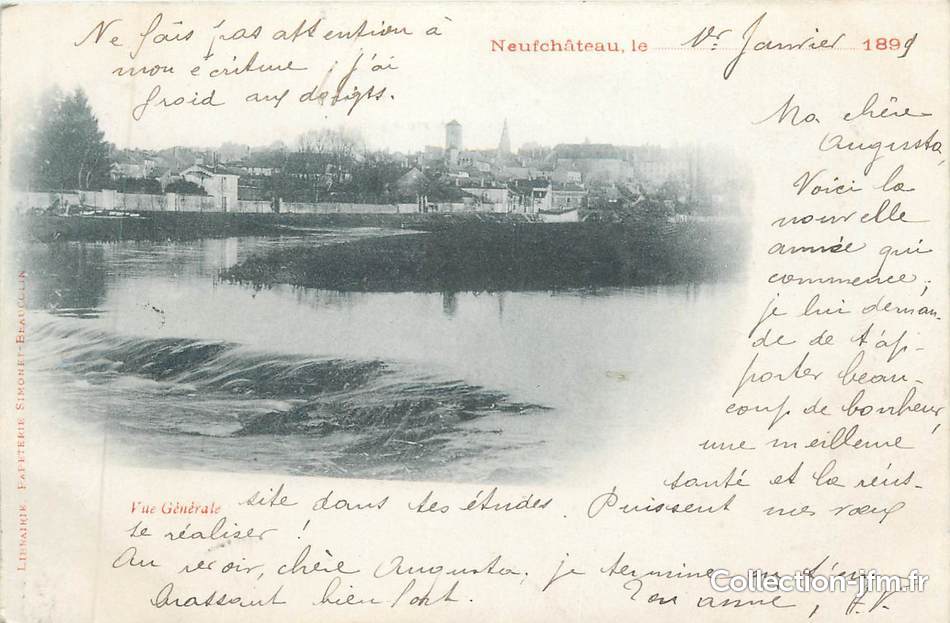 Ne fais pas attention à
mon écriture, j'ai
froid aux doigts.
Neufchâteau, le 1er Janvier 1899
Ma chère
Augusta,
Voici la
nouvelle
année qui
commence,
je lui deman-
de de t'ap-
porter beau-
coup de bonheur,
une meilleure
santé et la réus-
site dans tes études. Puissent mes vœux
se réaliser !
Au revoir, chère Augusta, je termine en
brassant bien fort.
Ton amie, F.V.
Vue Générale
LIBRAIRIE PAPETERIE SIMONET-BEAUCOLIN
Collection-jfm.fr